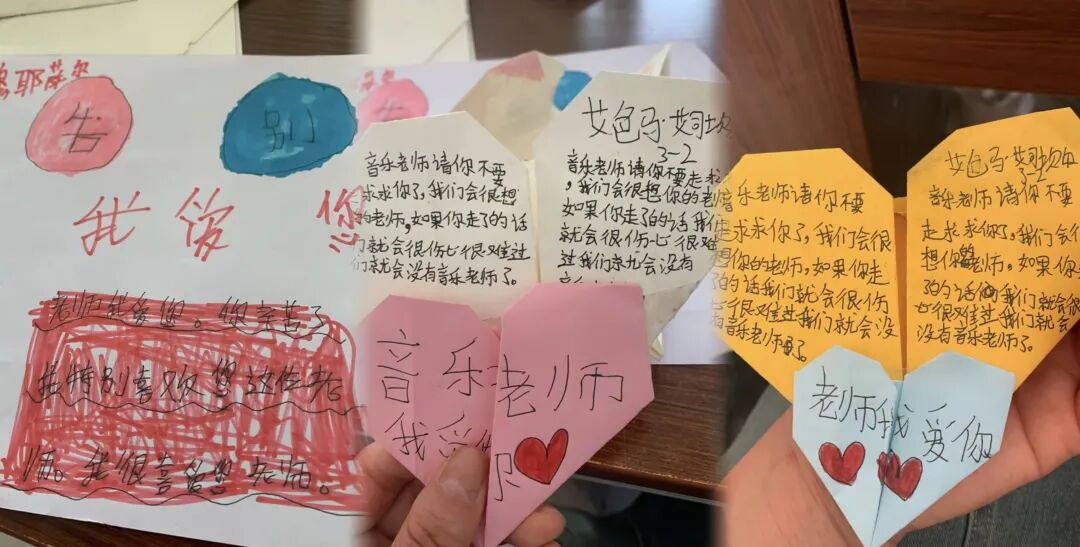 耶萨尔
告 别
我 爱 您
老师我爱您。您辛苦了
我特别喜欢您这位老
师。我很喜爱您老师。
音乐老师请你不要
求求你了,我们会很想
的老师,如果你走了的话
们就会很伤心很难过
们就会没有音乐老师了。
艾包马·艾司
3-2
音乐老师请你不要走求
,我们会很想你的老
如果你走了的话我们
就会很伤心很难过
过我们就会没有
音乐老师
我爱
你
音乐老师请你不要
走求求你了,我们会很
想你的老师,如果你走
了的话我们就会很伤
心很难过我们就会没
有音乐老师了。
艾包马·艾司坦
3-2
音乐老师请你不要
走求求你了,我们会
想你 老师。如果你
了的话 我们就会
心很难过我们就会
没有音乐老师了。
老师我爱你